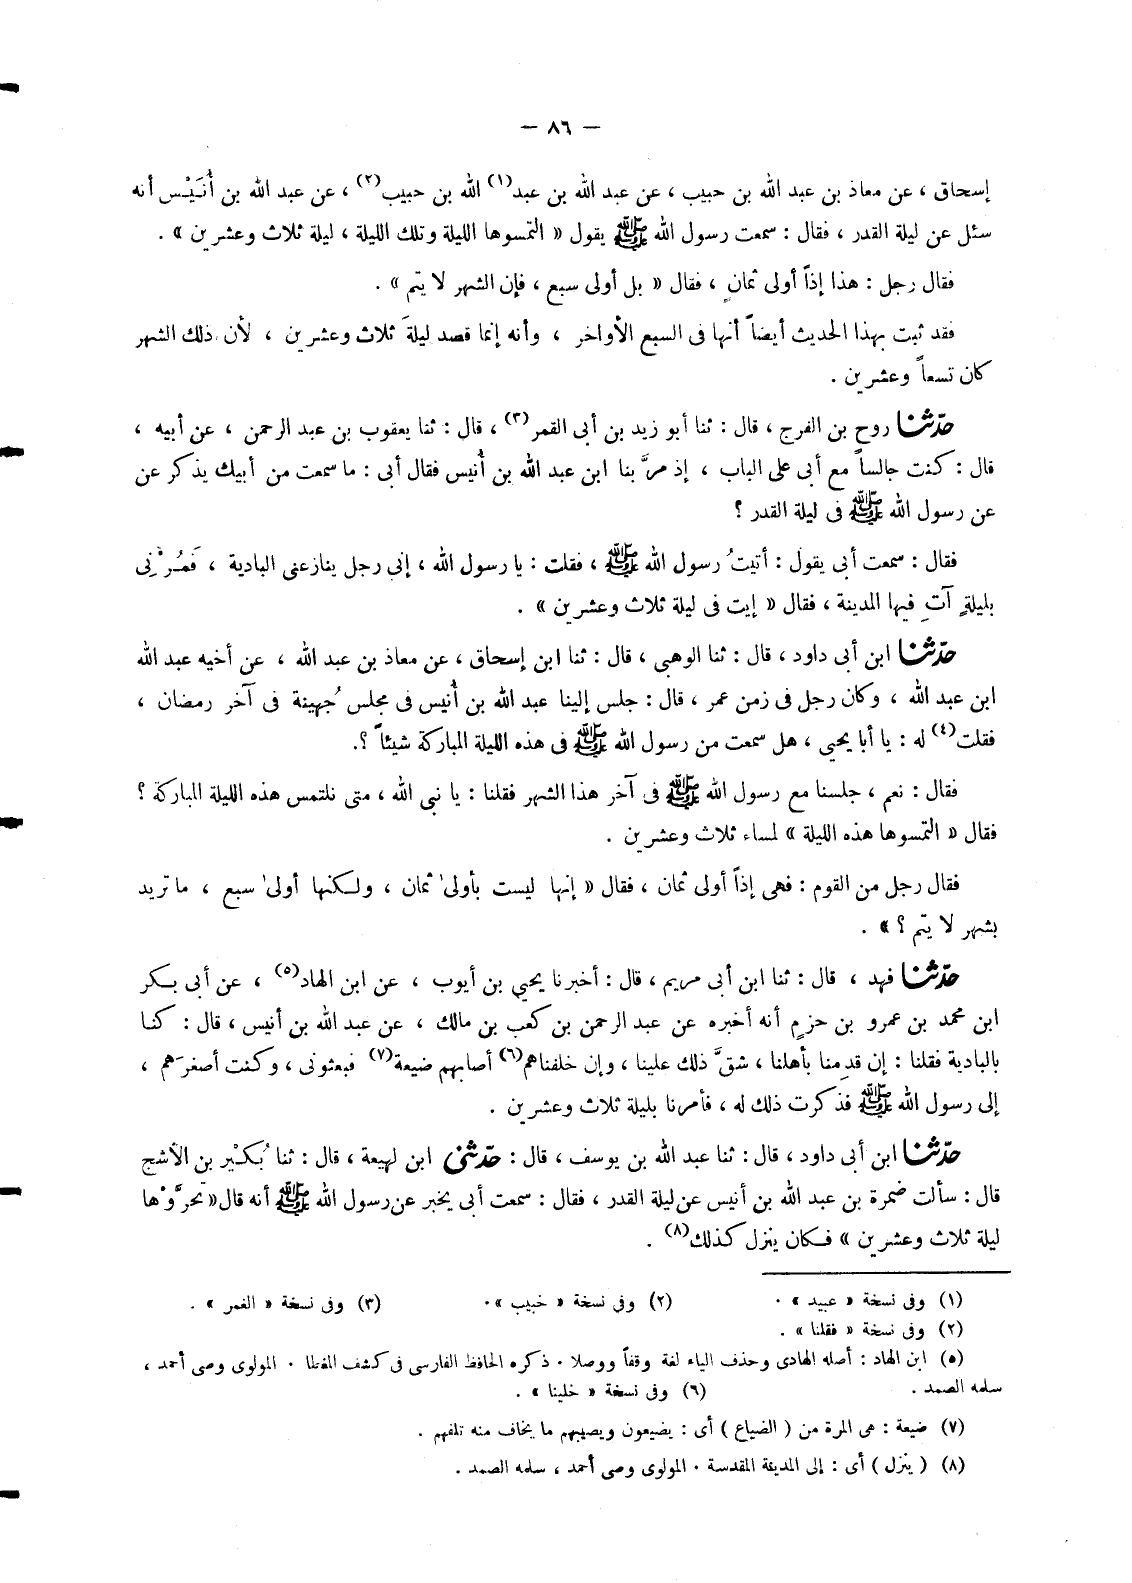 — ٨٦ —
إسحاق ، عن معاذ بن عبد الله بن حبيب ، عن عبد الله بن عبد(١) الله بن حبيب(٢) ، عن عبد الله بن أُنَيْس أنه
سئل عن ليلة القدر ، فقال : سمعت رسول الله ﷺ يقول « التمسوها الليلة وتلك الليلة ، ليلة ثلاث وعشرين » .
فقال رجل : هذا إذاً أولى ثمانٍ ، فقال « بل أولى سبع ، فإن الشهر لا يتم » .
فقد ثبت بهذا الحديث أيضاً أنها فى السبع الأواخر ، وأنه إنما قصد ليلةَ ثلاث وعشرين ، لأن ذلك الشهر
كان تسعاً وعشرين .
حدّثنا روح بن الفرج ، قال : ثنا أبو زيد بن أبى القمر(٣) ، قال : ثنا يعقوب بن عبد الرحمن ، عن أبيه ،
قال : كنت جالساً مع أبى على الباب ، إذ مرَّ بنا ابن عبد الله بن أُنيس فقال أبى : ما سمعت من أبيك يذكر عن
عن رسول الله ﷺ فى ليلة القدر ؟
فقال : سمعت أبى يقول : أتيتُ رسول الله ﷺ ، فقلت : يا رسول الله ، إنى رجل ينازعنى البادية ، فَمُرْنِى
بليلةٍ آتِ فيها المدينة ، فقال « إيت فى ليلة ثلاث وعشرين » .
حدّثنا ابن أبى داود ، قال : ثنا الوهبى ، قال : ثنا ابن إسحاق ، عن معاذ بن عبد الله ، عن أخيه عبد الله
ابن عبد الله ، وكان رجل فى زمن عمر ، قال : جلس إلينا عبد الله بن أُنيس فى مجلس جُهينة فى آخر رمضان ،
فقلت(٤) له : يا أبا يحيى ، هل سمعت من رسول الله ﷺ فى هذه الليلة المباركة شيئاً ؟.
فقال : نعم ، جلسنا مع رسول الله ﷺ فى آخر هذا الشهر فقلنا : يا نبى الله ، متى نلتمس هذه الليلة المباركة ؟
فقال « التمسوها هذه الليلة » لمساء ثلاث وعشرين .
فقال رجل من القوم : فهى إذاً أولى ثمان ، فقال « إنها ليست بأولىٰ ثمان ، ولكنها أولىٰ سبع ، ما تريد
بشهر لا يتم ؟ » .
حدّثنا فهد ، قال : ثنا ابن أبى مريم ، قال : أخبرنا يحيى بن أيوب ، عن ابن الهاد(٥) ، عن أبى بكر
ابن محمد بن عمرو بن حزمٍ أنه أخبره عن عبد الرحمن بن كعب بن مالك ، عن عبد الله بن أنيس ، قال : كنا
بالبادية فقلنا : إن قدِمنا بأهلنا ، شقَّ ذلك علينا ، وإن خلفناهم(٦) أصابهم ضيعة(٧) فبعثونى ، وكنت أصغرَهم ،
إلى رسول الله ﷺ فذكرت ذلك له ، فأمرنا بليلة ثلاث وعشرين .
حدّثنا ابن أبى داود ، قال : ثنا عبد الله بن يوسف ، قال : حدّثنى ابن لهيعة ، قال : ثنا بُكَيْر بن الأشج
قال : سألت ضمرة بن عبد الله بن أنيس عن ليلة القدر ، فقال : سمعت أبى يخبر عن رسول الله ﷺ أنه قال « تحرَّوْها
ليلة ثلاث وعشرين » فكان ينزل كذلك(٨) .
(١) وفى نسخة « عبيد » . (٢) وفى نسخة « خبيب » . (٣) وفى نسخة « الغمر » .
(٢) وفى نسخة « فقلنا » .
(٥) ابن الهاد : أصله الهادى وحذف الياء لغة وقفاً ووصلا . ذكره الحافظ الفارسى فى كشف المغطا . المولوى وصى أحمد ،
سلمه الصمد . (٦) وفى نسخة « خلينا » .
(٧) ضيعة : هى المرة من ( الضياع ) أى : يضيعون ويصيبهم ما يخاف منه تلفهم .
(٨) ( ينزل ) أى : إلى المدينة المقدسة . المولوى وصى أحمد ، سلمه الصمد .